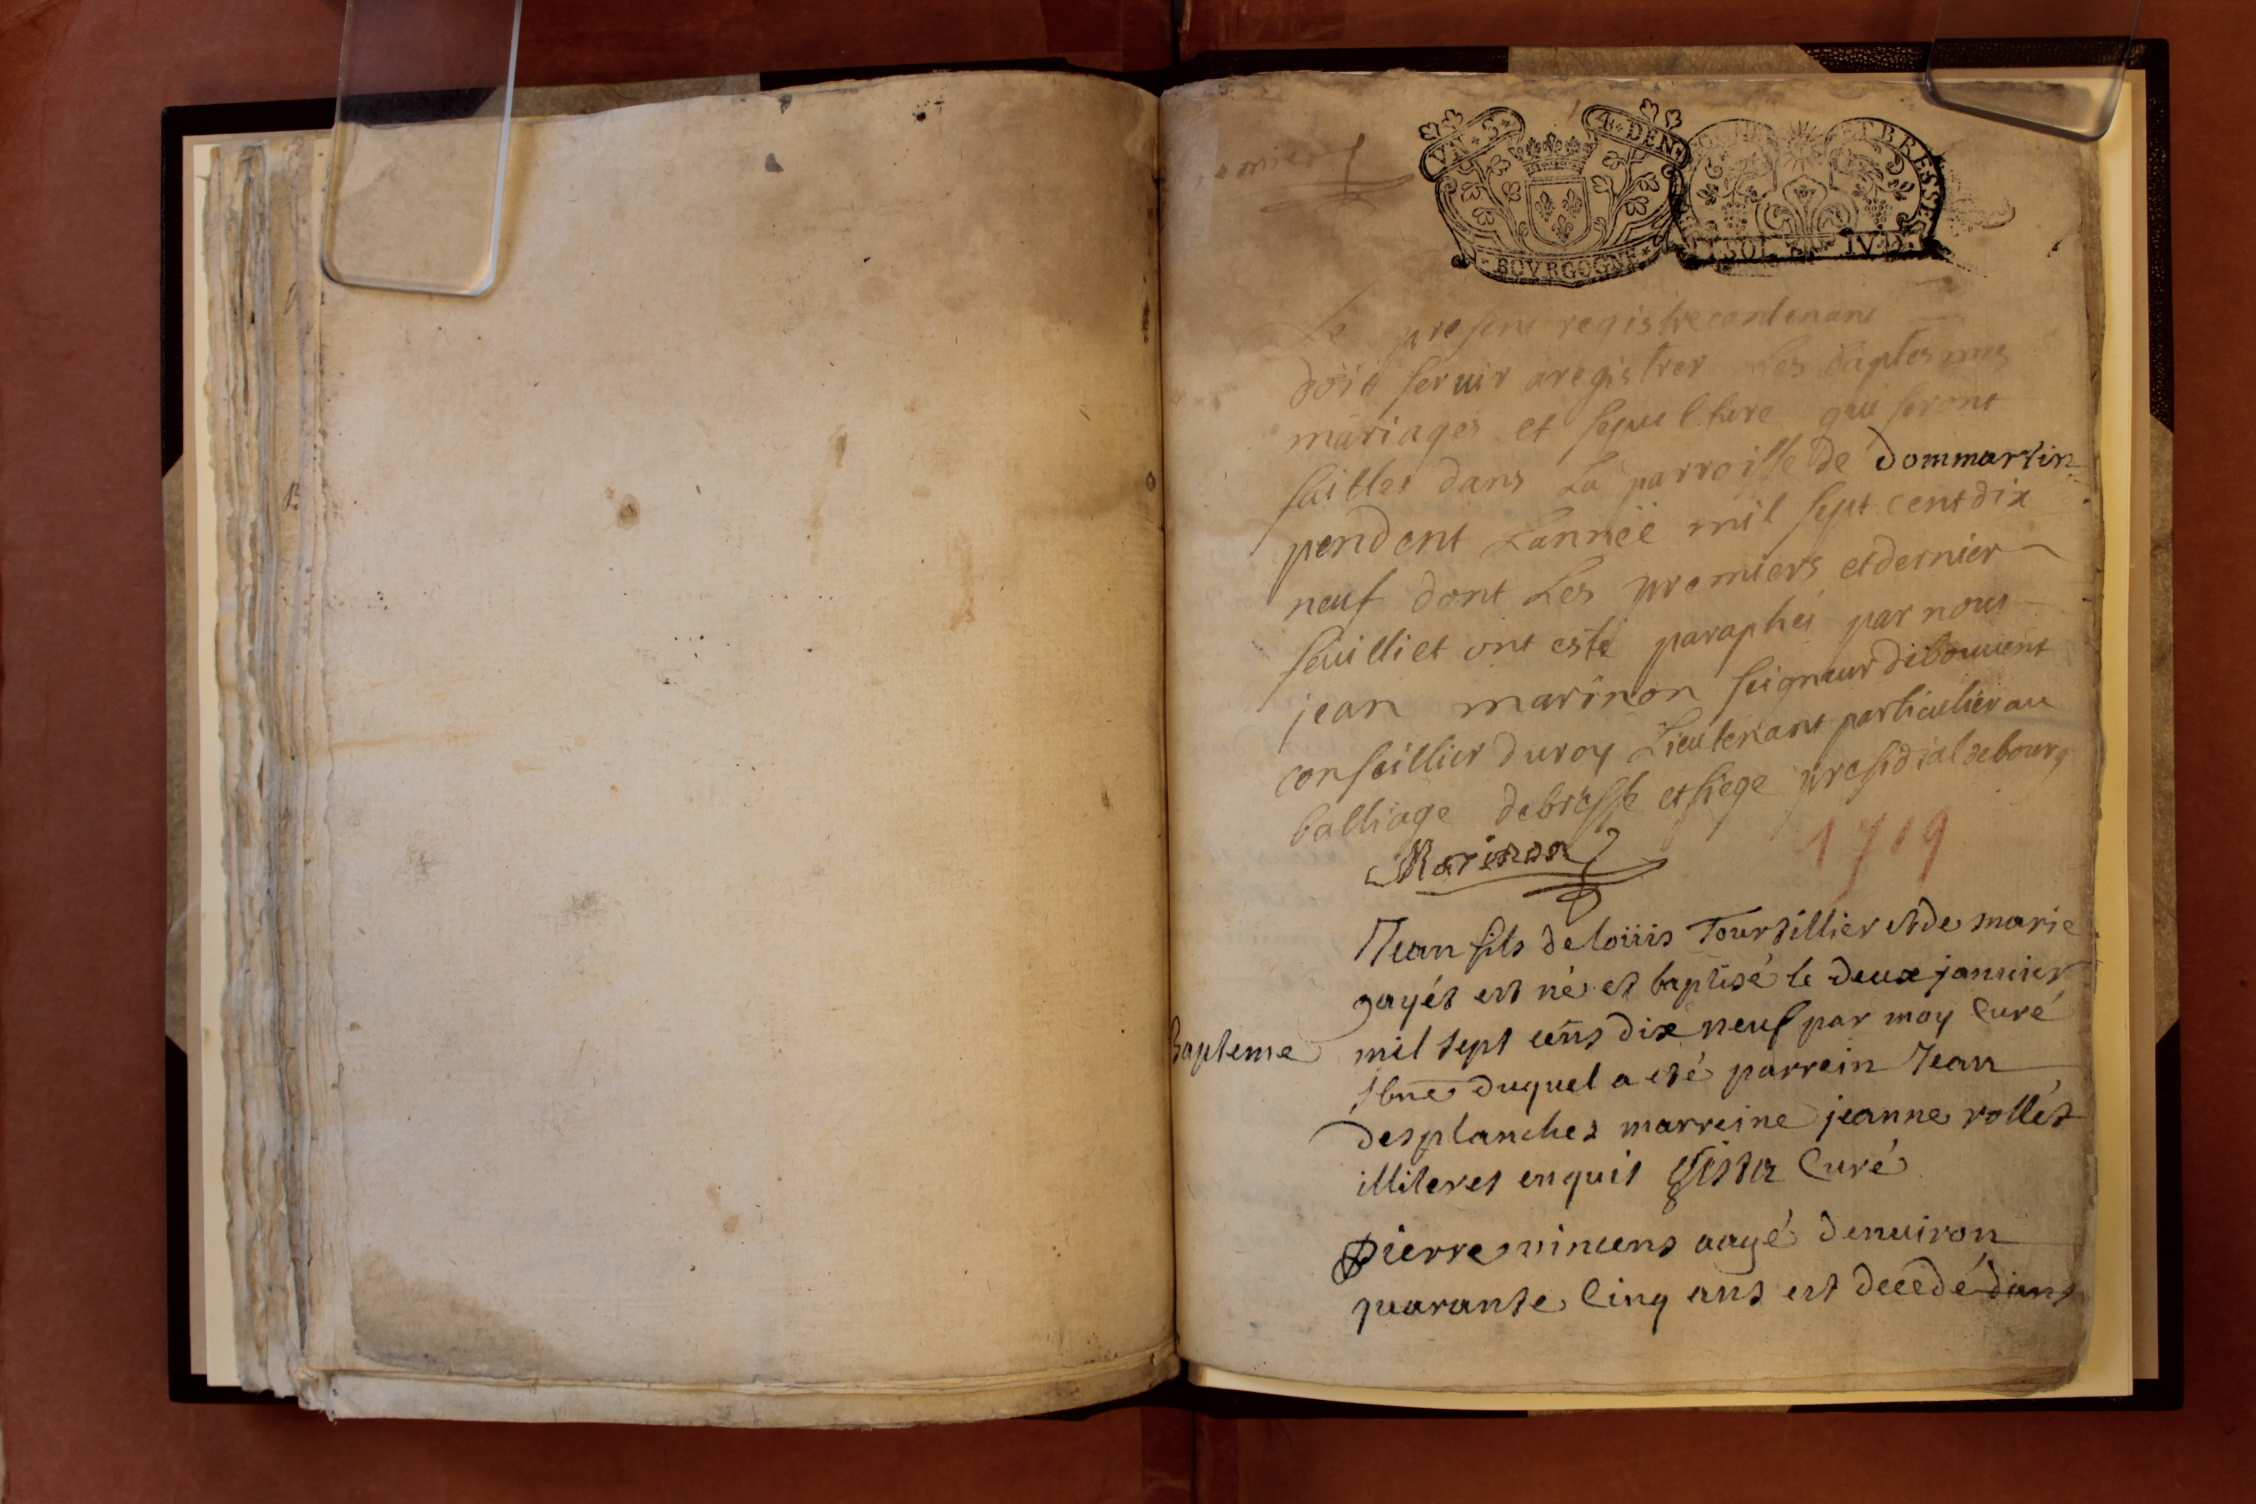 VN · S · 4 · DEN
BOVRGOGNE
ET BRESSE
SOL IV · D
premier
Le present registre contenant
doit servir a registrer les baptesmes
mariages et sepulture qui seront
faittes dans La parroisse de dommartin
pendent Lanneë mil sept cent dix
neuf dont Les premiers et dernier
feuilliet ont esté paraphéi par nous
jean marinon seigneur
conseillier du roy Lieutenant particulier au
balliage debresse et siege presidial de bourg
Marinon
1719
Jean fils de loüis Tourtillier et de marie
gayét est né et baptisé le deux januier
mil sept cens dix neuf par moy Curé
Bapteme
duquel a eté parrein Jean
desplanches marreine jeanne rollét
illiteres enquis Curé
pierre vincens aagé denuiron
quarante Cinq ans est decedé dans